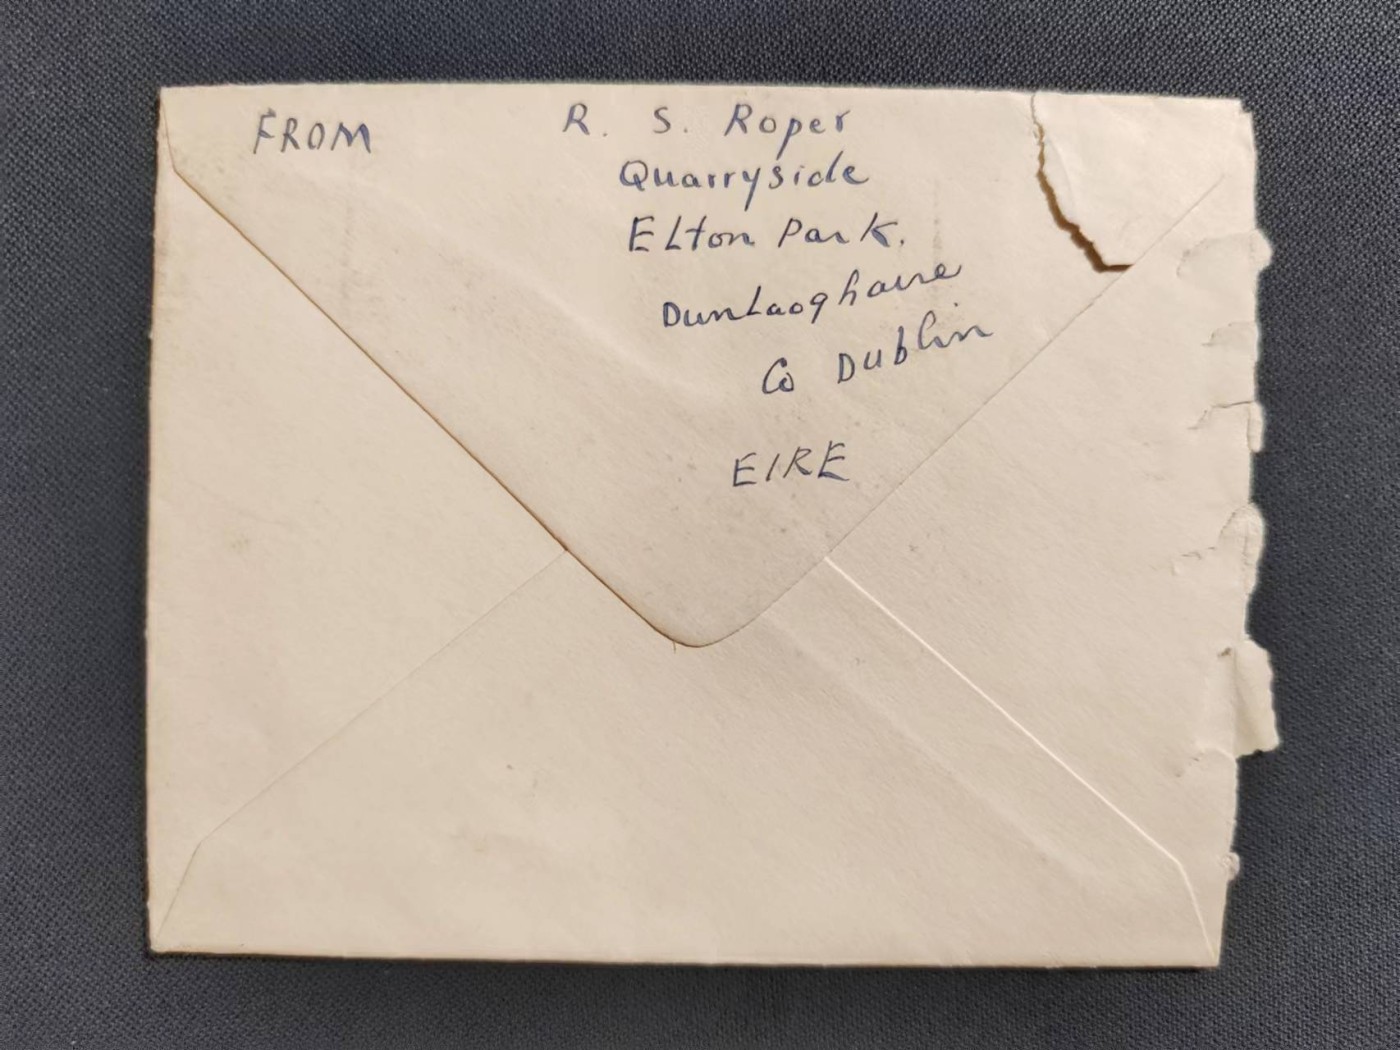 FROM R. S. Roper
Quarryside
Elton Park.
Dunlaoghaire
Co Dublin
EIRE